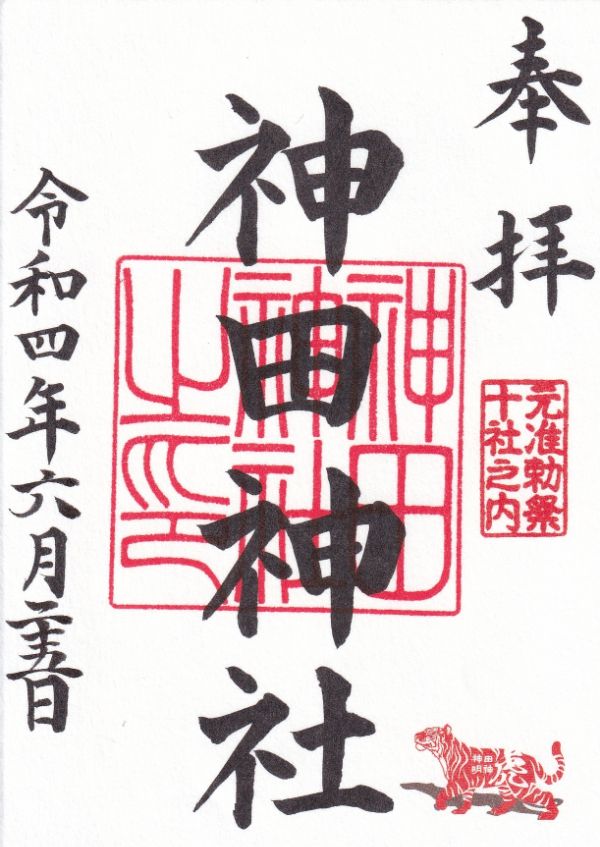 奉拝
元准勅祭
十社之内
神田神社
神田
神社
之印
令和四年六月二十五日
神田
明神